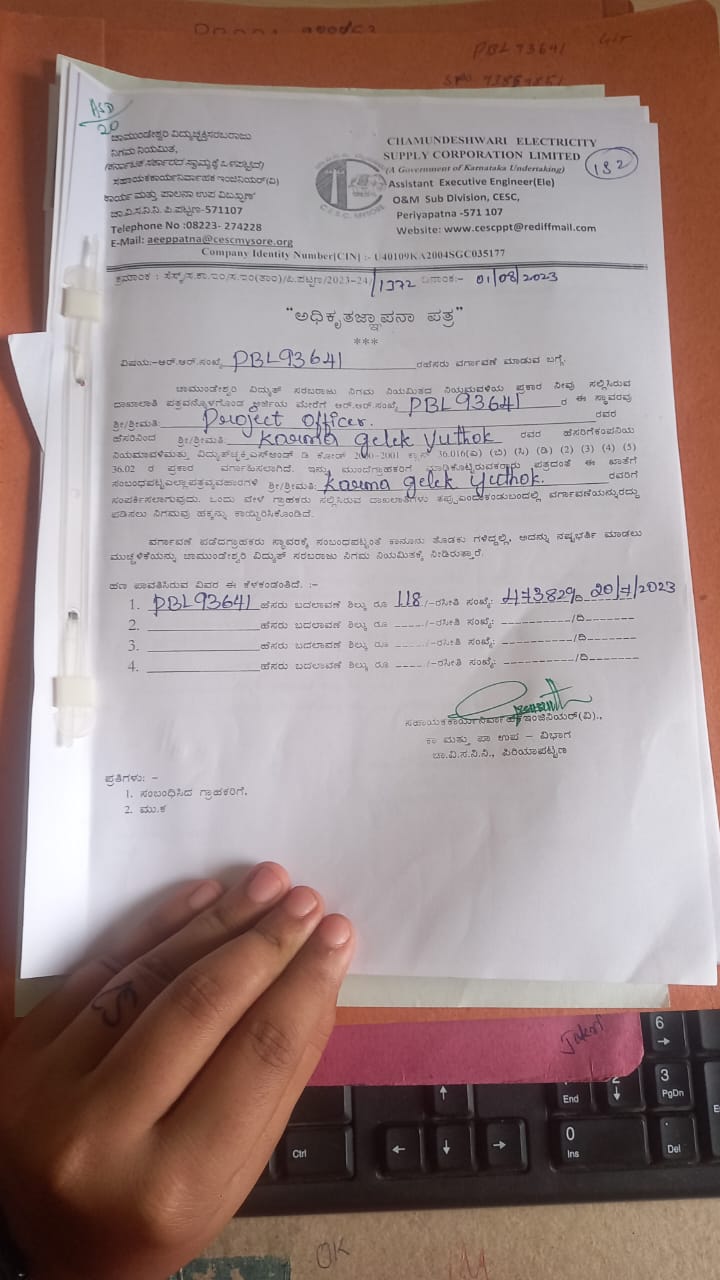 PBL 93641
ASD
20
ಚಾಮುಂಡೇಶ್ವರಿ ವಿದ್ಯುಚ್ಛಕ್ತಿಸರಬರಾಜು
ನಿಗಮ ನಿಯಮಿತ,
(ಕರ್ನಾಟಕ ಸರ್ಕಾರದ ಸ್ವಾಮ್ಯಕ್ಕೆ ಒಳಪಟ್ಟಿದೆ)
ಸಹಾಯಕಕಾರ್ಯನಿರ್ವಾಹಕ ಇಂಜಿನಿಯರ್(ವಿ)
ಕಾರ್ಯ ಮತ್ತು ಪಾಲನಾ ಉಪ ವಿಭಾಗ
ಚಾ.ವಿ.ಸ.ನಿ.ನಿ. ಪಿ.ಪಟ್ಟಣ-571107
Telephone No :08223- 274228
E-Mail: aeeppatna@cescmysore.org
CHAMUNDESHWARI ELECTRICITY
SUPPLY CORPORATION LIMITED
(A Government of Karnataka Undertaking)
Assistant Executive Engineer(Ele)
O&M Sub Division, CESC,
Periyapatna -571 107
Website: www.cescppt@rediffmail.com
132
C.E.S.C. MYSORE
Company Identity Number[CIN] :- U40109KA2004SGC035177
ಕ್ರಮಾಂಕ : ಸೆಸ್ಕ್/ಸ.ಕಾ.ಇಂ/ಸ.ಇಂ(ತಾಂ)/ಪಿ.ಪಟ್ಟಣ/2023-24/1372 ದಿನಾಂಕ:- 01/08/2023
"ಅಧಿಕೃತಜ್ಞಾಪನಾ ಪತ್ರ"
***
ವಿಷಯ:-ಆರ್.ಆರ್.ಸಂಖ್ಯೆ PBL93641 ರಹೆಸರು ವರ್ಗಾವಣೆ ಮಾಡುವ ಬಗ್ಗೆ.
ಚಾಮುಂಡೇಶ್ವರಿ ವಿದ್ಯುತ್ ಸರಬರಾಜು ನಿಗಮ ನಿಯಮಿತದ ನಿಯಮವಳಿಯ ಪ್ರಕಾರ ನೀವು ಸಲ್ಲಿಸಿರುವ
ದಾಖಲಾತಿ ಪತ್ರವನ್ನೊಳಗೊಂಡ ಅರ್ಜಿಯ ಮೇರೆಗೆ ಆರ್.ಆರ್.ಸಂಖ್ಯೆ PBL93641 ರ ಈ ಸ್ಥಾವರವು
ಶ್ರೀ/ಶ್ರೀಮತಿ: Project Officer. ರವರ
ಹೆಸರಿನಿಂದ ಶ್ರೀ/ಶ್ರೀಮತಿ: Karma gelek Yuthok ರವರ ಹೆಸರಿಗೆಕಂಪನಿಯ
ನಿಯಮಾವಳಿಮತ್ತು ವಿದ್ಯುತ್‌ಚ್ಛಕ್ತಿ ಎಸ್ಅಂಡ್ ಡಿ ಕೋಡ್ 2000-2001 ಕ್ಲಾಸ್ 36.016(ಎ) (ಬಿ) (ಸಿ) (ಡಿ) (2) (3) (4) (5)
36.02 ರ ಪ್ರಕಾರ ವರ್ಗಾಹಿಸಲಾಗಿದೆ. ಇನ್ನು ಮುಂದೆಗ್ರಾಹಕರಿಗೆ ಮಾಡಿಕೊಟ್ಟಿರುವಕರಾರು ಪತ್ರದಂತೆ ಈ ಖಾತೆಗೆ
ಸಂಬಂಧಪಟ್ಟಎಲ್ಲಾಪತ್ರವ್ಯವಹಾರಗಳಿಗೆ ಶ್ರೀ/ಶ್ರೀಮತಿ: Karma gelek Yuthok. ರವರಿಗೆ
ಸಂಪರ್ಕಿಸಲಾಗುವುದು. ಒಂದು ವೇಳೆ ಗ್ರಾಹಕರು ಸಲ್ಲಿಸಿರುವ ದಾಖಲಾತಿಗಳು ತಪ್ಪುಎಂದುಕಂಡುಬಂದಲ್ಲಿ ವರ್ಗಾವಣೆಯನ್ನುರದ್ದು
ಪಡಿಸಲು ನಿಗಮವು ಹಕ್ಕನ್ನು ಕಾಯ್ದಿರಿಸಿಕೊಂಡಿದೆ.
ವರ್ಗಾವಣೆ ಪಡೆದಗ್ರಾಹಕರು ಸ್ಥಾವರಕ್ಕೆ ಸಂಬಂಧಪಟ್ಟಂತೆ ಕಾನೂನು ತೊಡಕು ಗಳಿದ್ದಲ್ಲಿ, ಅದನ್ನು ನಷ್ಟಭರ್ತಿ ಮಾಡಲು
ಮುಚ್ಚಳಿಕೆಯನ್ನು ಚಾಮುಂಡೇಶ್ವರಿ ವಿದ್ಯುತ್ ಸರಬರಾಜು ನಿಗಮ ನಿಯಮಿತಕ್ಕೆ ನೀಡಿರುತ್ತಾರೆ.
ಹಣ ಪಾವತಿಸಿರುವ ವಿವರ ಈ ಕೆಳಕಂಡಂತಿದೆ. :-
1. PBL93641 ಹೆಸರು ಬದಲಾವಣೆ ಶಿಲ್ಕು ರೂ 118 /-ರಸೀತಿ ಸಂಖ್ಯೆ: 473829 20/7/2023
2. ಹೆಸರು ಬದಲಾವಣೆ ಶಿಲ್ಕು ರೂ _____/-ರಸೀತಿ ಸಂಖ್ಯೆ: ----------/ದಿ-------
3. ಹೆಸರು ಬದಲಾವಣೆ ಶಿಲ್ಕು ರೂ _____/-ರಸೀತಿ ಸಂಖ್ಯೆ: ----------/ದಿ-------
4. ಹೆಸರು ಬದಲಾವಣೆ ಶಿಲ್ಕು ರೂ _____/-ರಸೀತಿ ಸಂಖ್ಯೆ: ----------/ದಿ-------
ಸಹಾಯಕಕಾರ್ಯನಿರ್ವಾಹಕಇಂಜಿನಿಯರ್(ವಿ).,
ಕಾ ಮತ್ತು ಪಾ ಉಪ – ವಿಭಾಗ
ಚಾ.ವಿ.ಸ.ನಿ.ನಿ., ಪಿರಿಯಾಪಟ್ಟಣ
ಪ್ರತಿಗಳು: –
1. ಸಂಬಂಧಿಸಿದ ಗ್ರಾಹಕರಿಗೆ.
2. ಮು.ಕ
6
3
PgDn
End
2
0
Ins
Del
Ctrl
OK